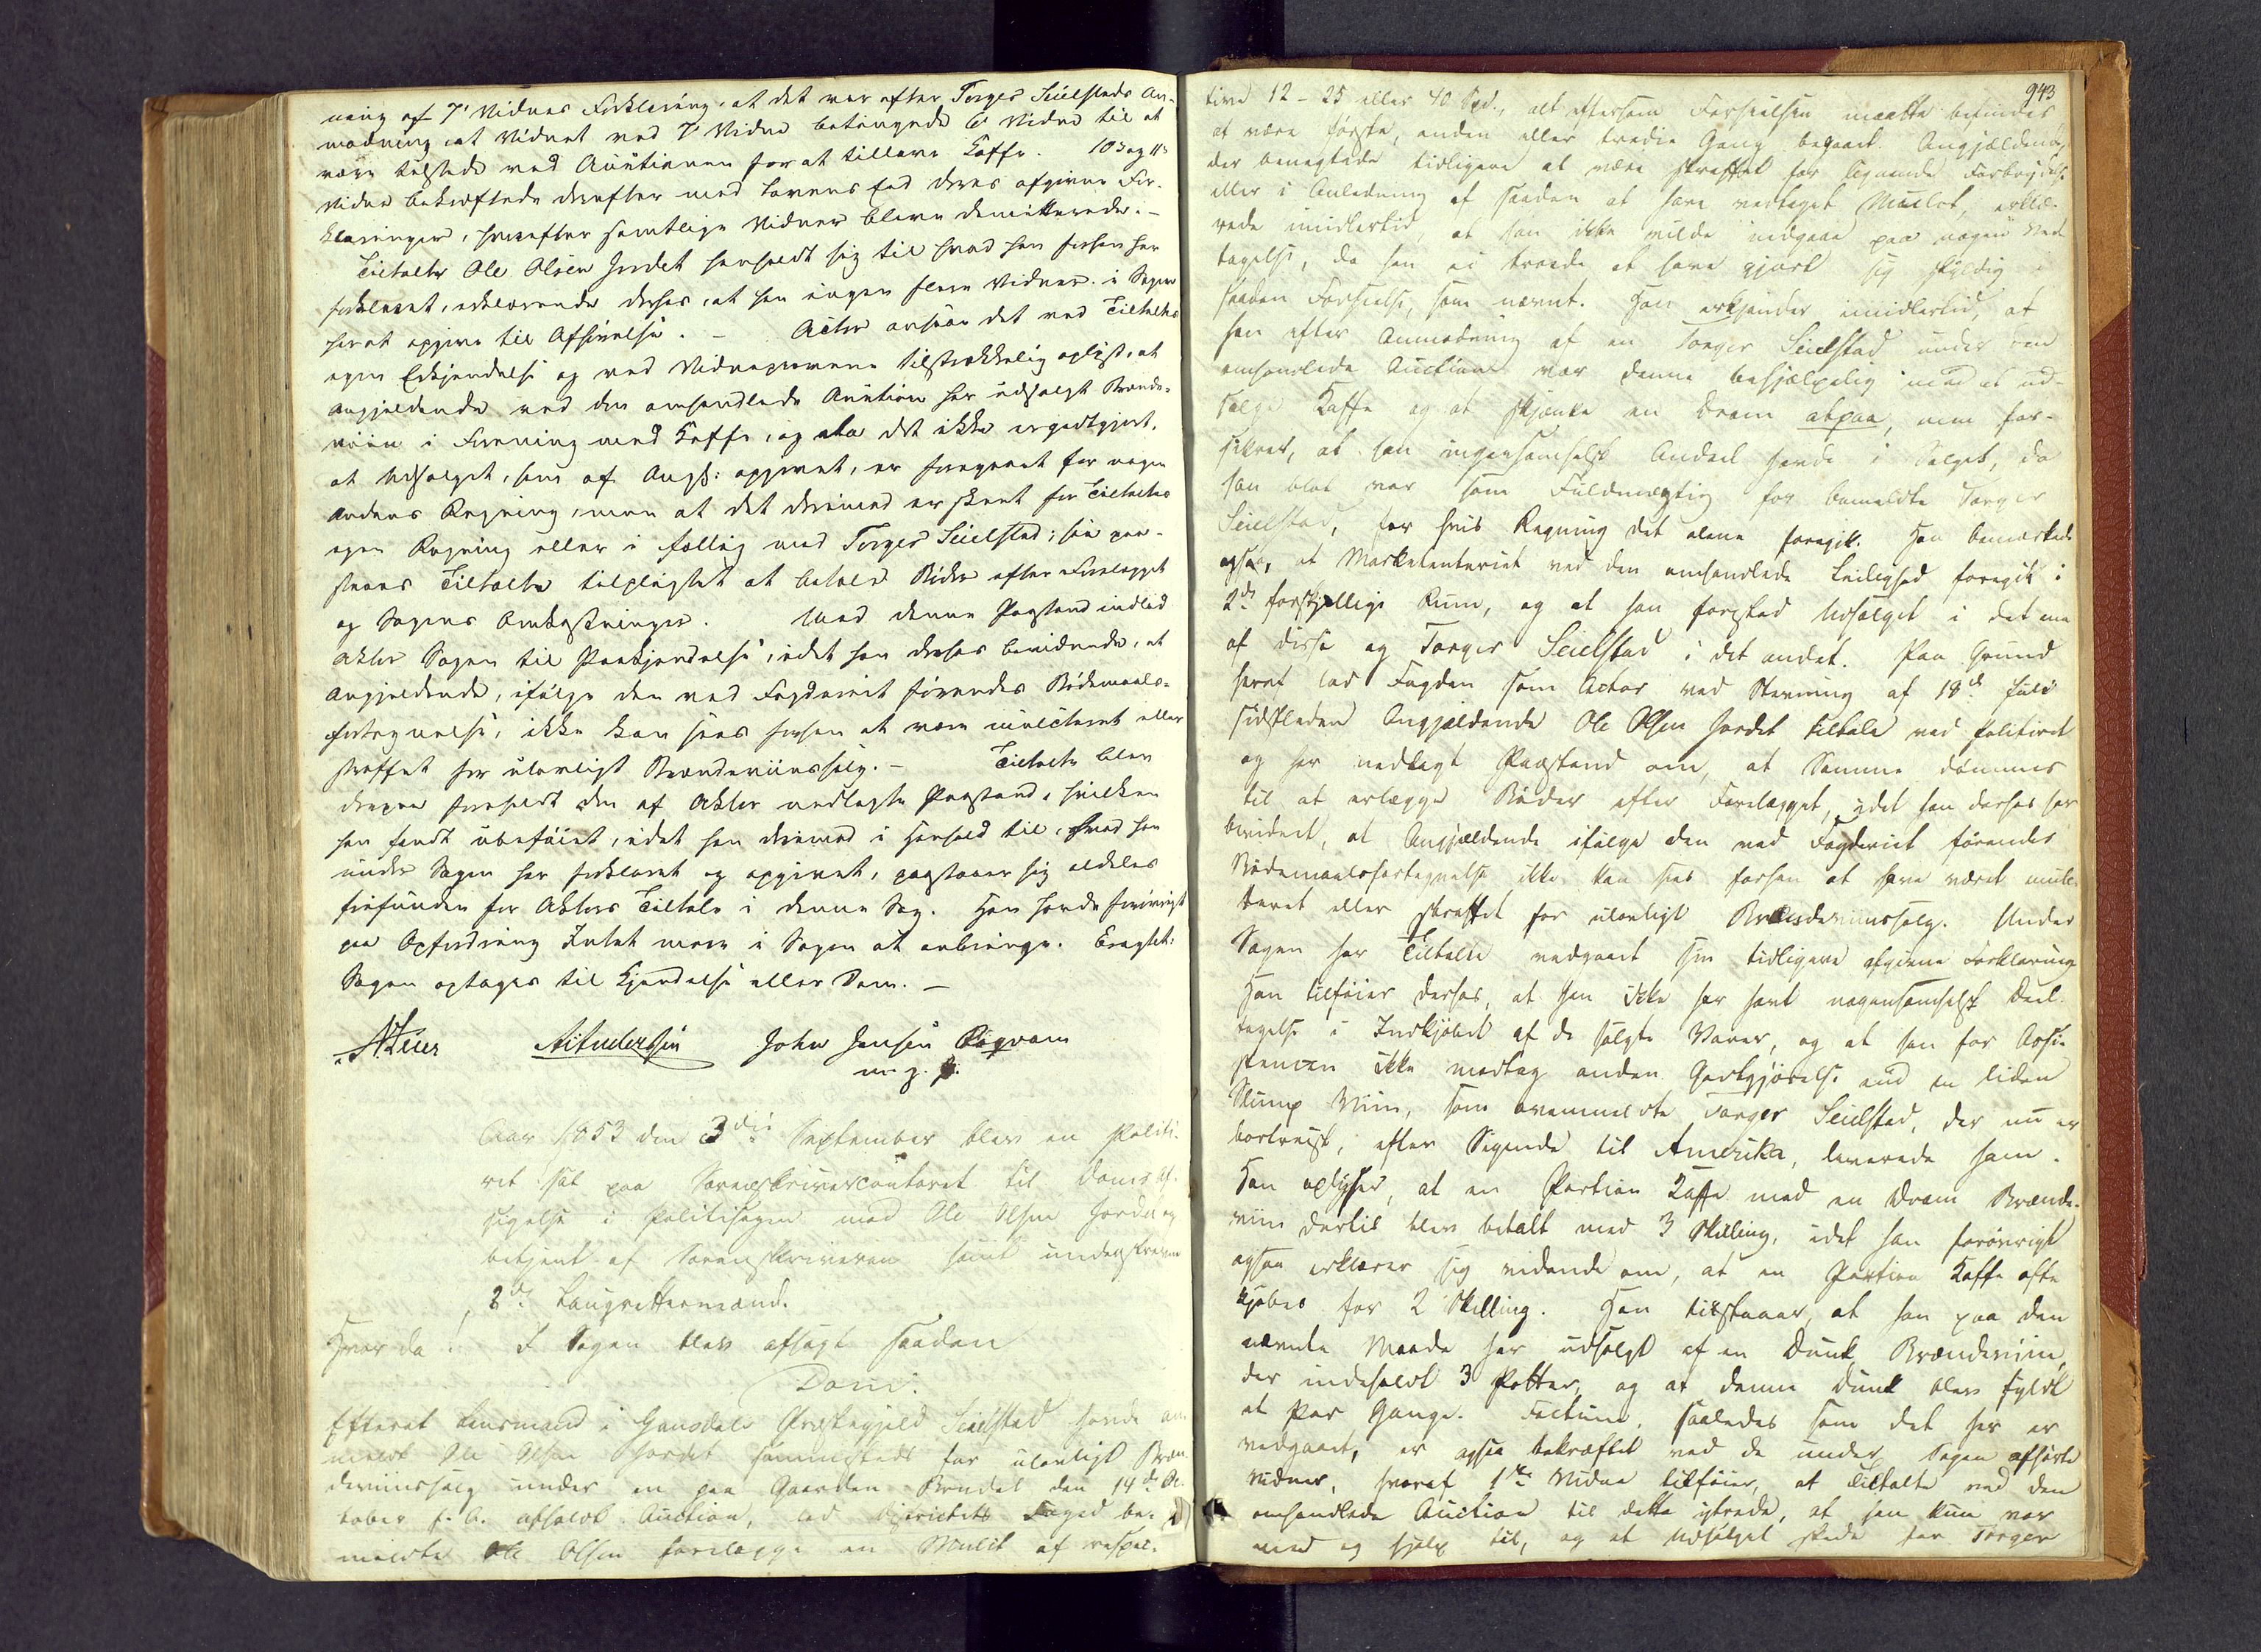 ning af 7' Vidnes Forklaring, at det var efter Torger Seielsteds An-
modning at Vidnet ved 7' Vidne betingede 6' Vidne til at
være tilstede ved Auctionen for at tillave Kaffe. 10de og 11te
Vidne bekræftede derefter med Lovens Eed deres afgivne For-
klaringer, hvorefter samtlige Vidner bleve demitterede. -
Tiltalte Ole Olsen Jordet henholdt sig til hvad han forhen har
forklaret, erklærende derhos, at han ingen flere Vidner i Sagen
har at opgive til Afhørelse. - Actor ansaae det ved Tiltaltes
egen Erkjendelse og ved Vidneprovene tilstrækkelig oplyst, at
Angjeldende ved den omhandlede Auction har udsolgt Brænde-
viin i Forening med Kaffe, og da det ikke er godtgjort,
at Udsalget, som af Angj: opgivet, er foregaaet for nogen
Andens Regning, men at det derimod er skeet for Tiltaltes
egen Regning eller i fællig med Torger Seielsted; saa paa-
staaes Tiltalte tilpligtet at betale Bøder efter Forelægget
og Sagens Omkostninger. Med denne Paastand indlod
Aktor Sagen til Paakjendelse, idet han derhos bevidnede, at
Angjeldende, ifølge den ved Fogderiet førendes Bødemaals-
fortegnelse, ikke kan sees forhen at være mulcteret eller
straffet for ulovligt Brændeviinssalg. - Tiltalte blev
derpaa foreholdt den af Aktor nedlagte Paastand, hvilken
han fandt ubeføiet, idet han derimod i Henhold til, hvad han
under Sagen har forklaret og opgivet, paastaaer sig aldeles
frifunden for Aktors Tiltale i denne Sag. Han havde forøvrigt
paa Opfordring Intet mere i Sagen at anbringe. Eragtet:
Sagen optages til Kjendelse eller Dom. -
John Jensen Rogvam
m. p. P.
Aar 1853 den 3die September blev en Politi-
ret sat paa Sorenskrivercontoret til Doms Af-
sigelse i Politisagen mod Ole Olsen Jordet og
betjent af Sorenskriveren samt underskrevne
2de Laugrettesmænd.
Hvor da: I Sagen blev afsagt saadan
Dom:
Efterat Lensmand i Gausdals Præstegjeld Seielstad havde an-
meldt Ole Olsen Jordet sammesteds for ulovligt Bræn-
deviinssalg under en paa Gaarden den 14de Oc-
tober f. A. afholdt Auction, lod Districtets Foged be-
meldte Ole Olsen forelægge en Mulct af respec-
943
tive 12 - 25 eller 40 Spd., alt eftersom Forseelsen maatte befindes
at være første, anden eller tredie Gang begaaet. Angjældende,
der benegtede tidligere at være straffet for lignende Forbrydelse
eller i Anledning af saadan at have vedtaget Mulct, erklæ-
rede imidlertid, at han ikke vilde indgaae paa nogen Ved-
tagelse, da han ei troede at have gjort sig skyldig i
saadan Forseelse, som nævnt. Han erkjender imidlertid, at
han efter Anmodning af en Torger Seielstad under den
omhandlede Auction var denne behjælpelig med at ud-
sælge Kaffe og at skjænke en Dram atpaa, men for-
sikrer, at han ingensomhelst Andeel havde i Salget, da
han blot var som Fuldmægtig for bemeldte Torger
Seielstad, for hvis Regning det alene foregik. Han bemærkede
ogsaa, at Marketenteriet ved den omhandlede Leilighed foregik i
2de forskjellige Rum, og at han forestod Udsalget i det ene
af disse og Torger Seielstad i det andet. Paa Grund
heraf lod Fogden som Actor ved Stevning af 18de Juli
sidstleden Angjældende Ole Olsen Jordet tiltale ved Politiret
og har nedlagt Paastand om, at Samme dømmes
til at erlægge Bøder efter Forelægget, idet han derhos har
bevidnet, at Angjældende ifølge den ved Fogderiet førendes
Bødemaalsfortegnelse ikke kan sees forhen at have været mulc-
teret eller straffet for ulovligt Brændeviinssalg. Under
Sagen har Tiltalte vedgaaet sin tidligere afgivne Forklaring.
Han tilføier derhos, at han ikke har havt nogensomhelst Deel-
tagelse i Indkjøbet af de solgte Varer, og at han for Assi-
stencen ikke modtog anden Godtgjørelse end en liden
Slump Viin, som ovenmeldte Torger Seielstad, der nu er
bortreist, efter Sigende til Amerika, leverede ham.
Han oplyser, at en Portion Kaffe med en Dram Brænde-
viin dertil blev betalt med 3 Skilling, idet han forøvrigt
ogsaa erklærer sig vidende om, at en Portion Kaffe ofte
kjøbes for 2 Skilling. Han tilstaaer, at han paa den
nævnte Maade har udsolgt af en Dunk Brændeviin,
der indeholdt 3 Potter, og at denne Dunk blev fyldt
et Par Gange. Factum, saaledes som det her er
vedgaaet, er ogsaa bekræftet ved de under Sagen afhørte
Vidner, hvoraf 1ste Vidne tilføier, at Tiltalte ved den
omhandlede Auction til dette ytrede, at han kun var
med og hjalp til, og at Udsalget skede for Torger